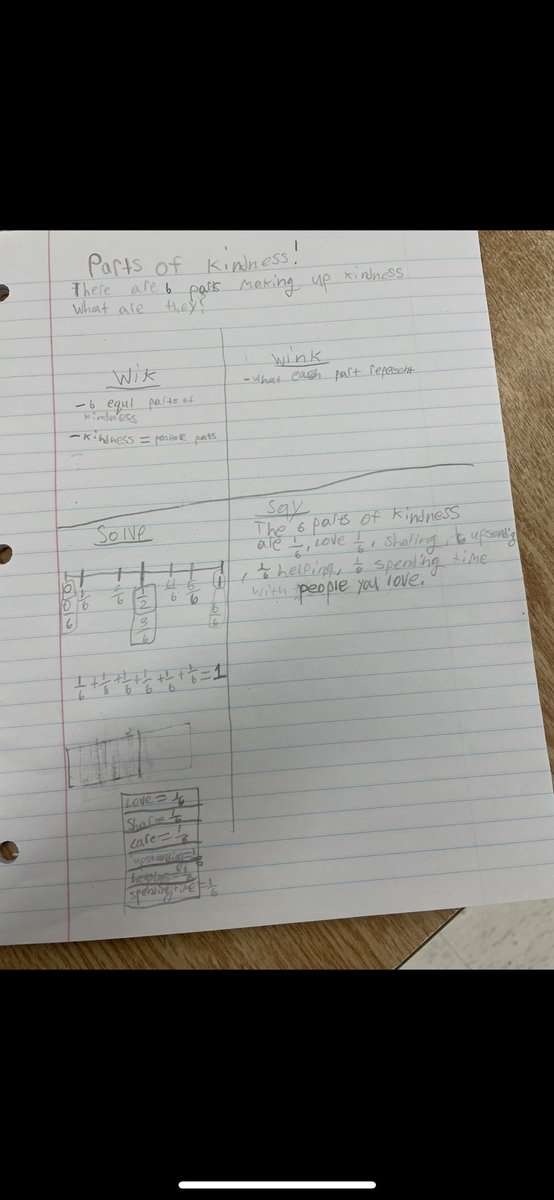 Parts of kindness!
There are 6 parts making up kindness
what are they?
Wik
- 6 equl parts of
kindness
- kindness = positive parts
Wink
- What each part repesent
Solve
0 1/6 2/6 1/2 4/6 5/6 1
0/6 3/6 6/6
1/6 + 1/6 + 1/6 + 1/6 + 1/6 + 1/6 = 1
Love = 1/6
Shar = 1/6
care = 1/6
upstanding = 1/6
helping = 1/6
spending time = 1/6
Say
The 6 parts of kindness
are 1/6, love 1/6, sharing, 1/6 upstanding
, 1/6 helping, 1/6 spending time
with people you love.